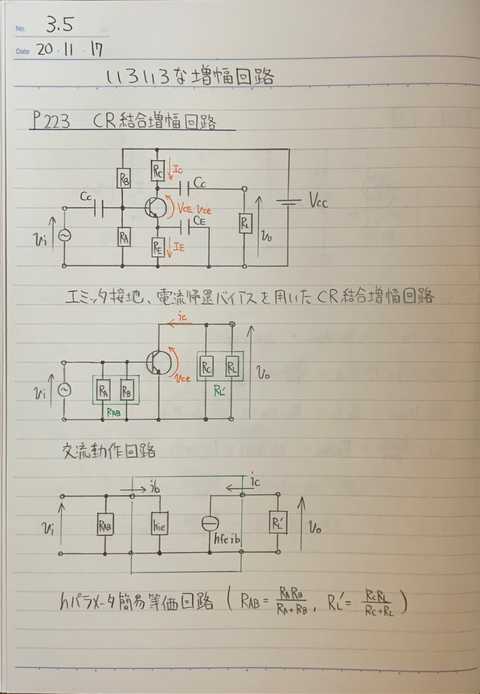 No. 3.5
Date 20・11・17
いろいろな増幅回路
P223 CR結合増幅回路
RB RC IC CC
CC VCE vce VCC
vi CE RL vo
RA RE IE
エミッタ接地、電流帰還バイアスを用いたCR結合増幅回路
ic
vi RA RB vce RC RL vo
RAB RL'
交流動作回路
ib ic
vi RAB hie hfe ib RL' vo
hパラメータ簡易等価回路 ( RAB = RA RB / RA+RB , RL' = RC RL / RC+RL )